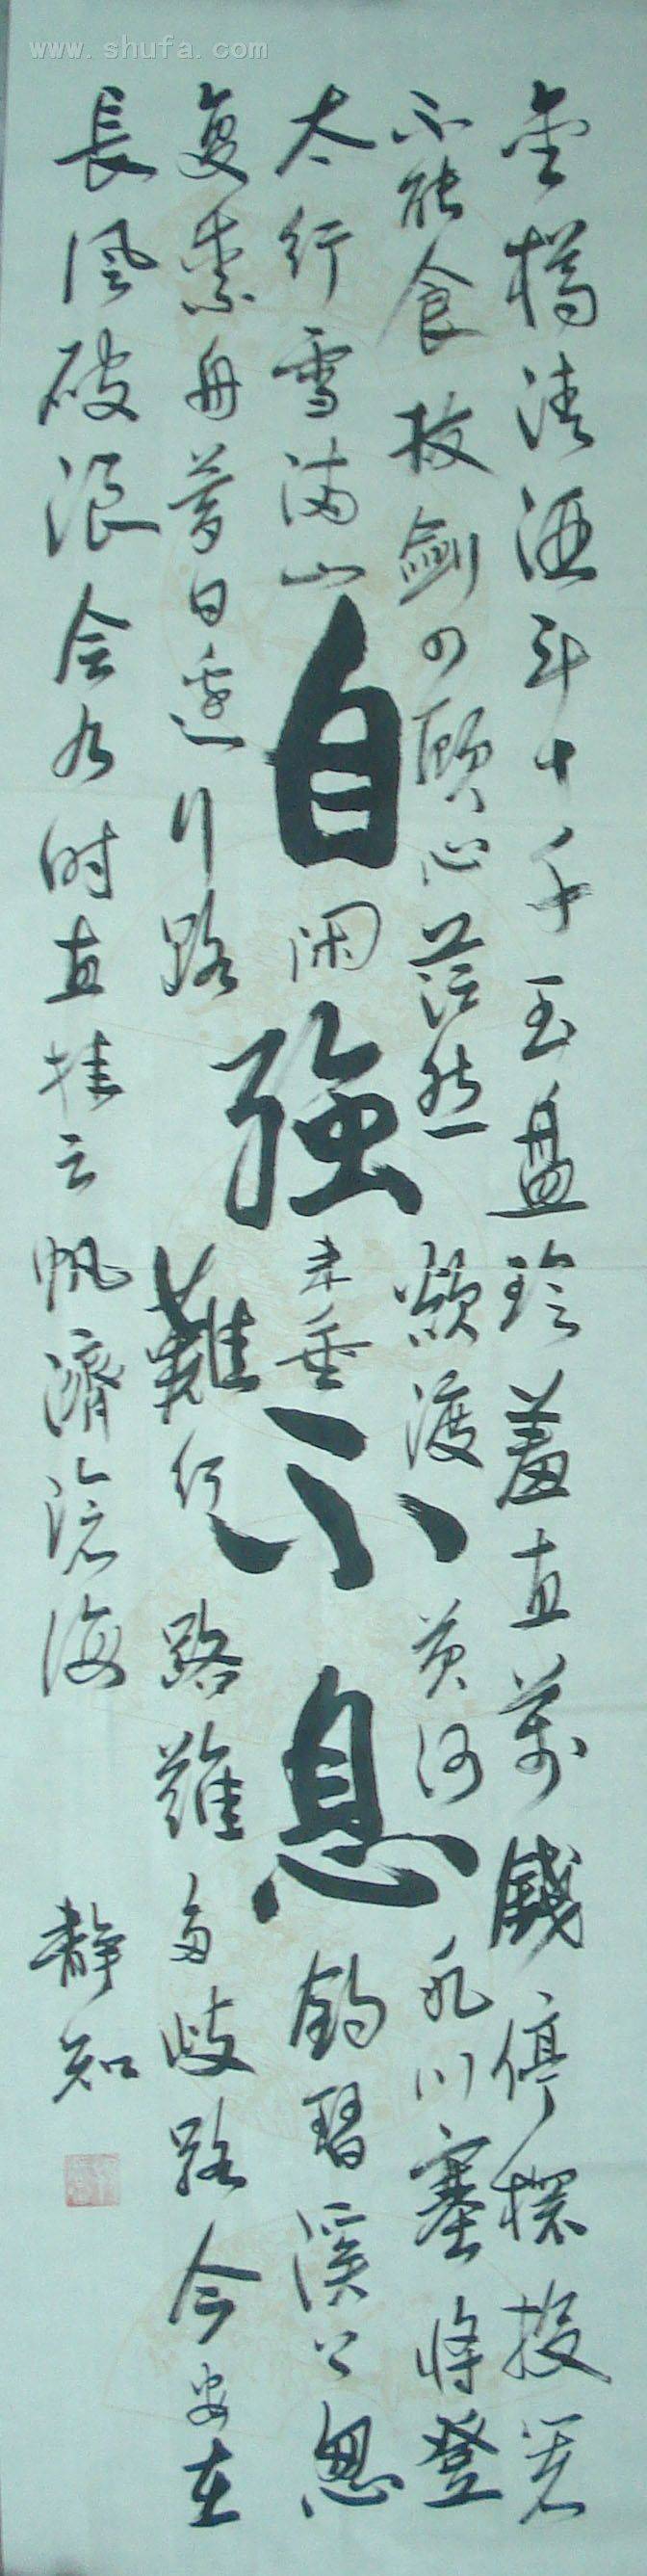 www.shufa.com
金樽清酒斗十千玉盘珍羞直萬錢停杯投箸
不能食拔劍四顧心茫然欲渡黄河冰川塞将登
太行雪满山闲来垂钓碧溪上忽
自強不息
复乘舟梦日边行路難行路難多歧路今安在
長风破浪会有时直挂云帆濟滄海
静知